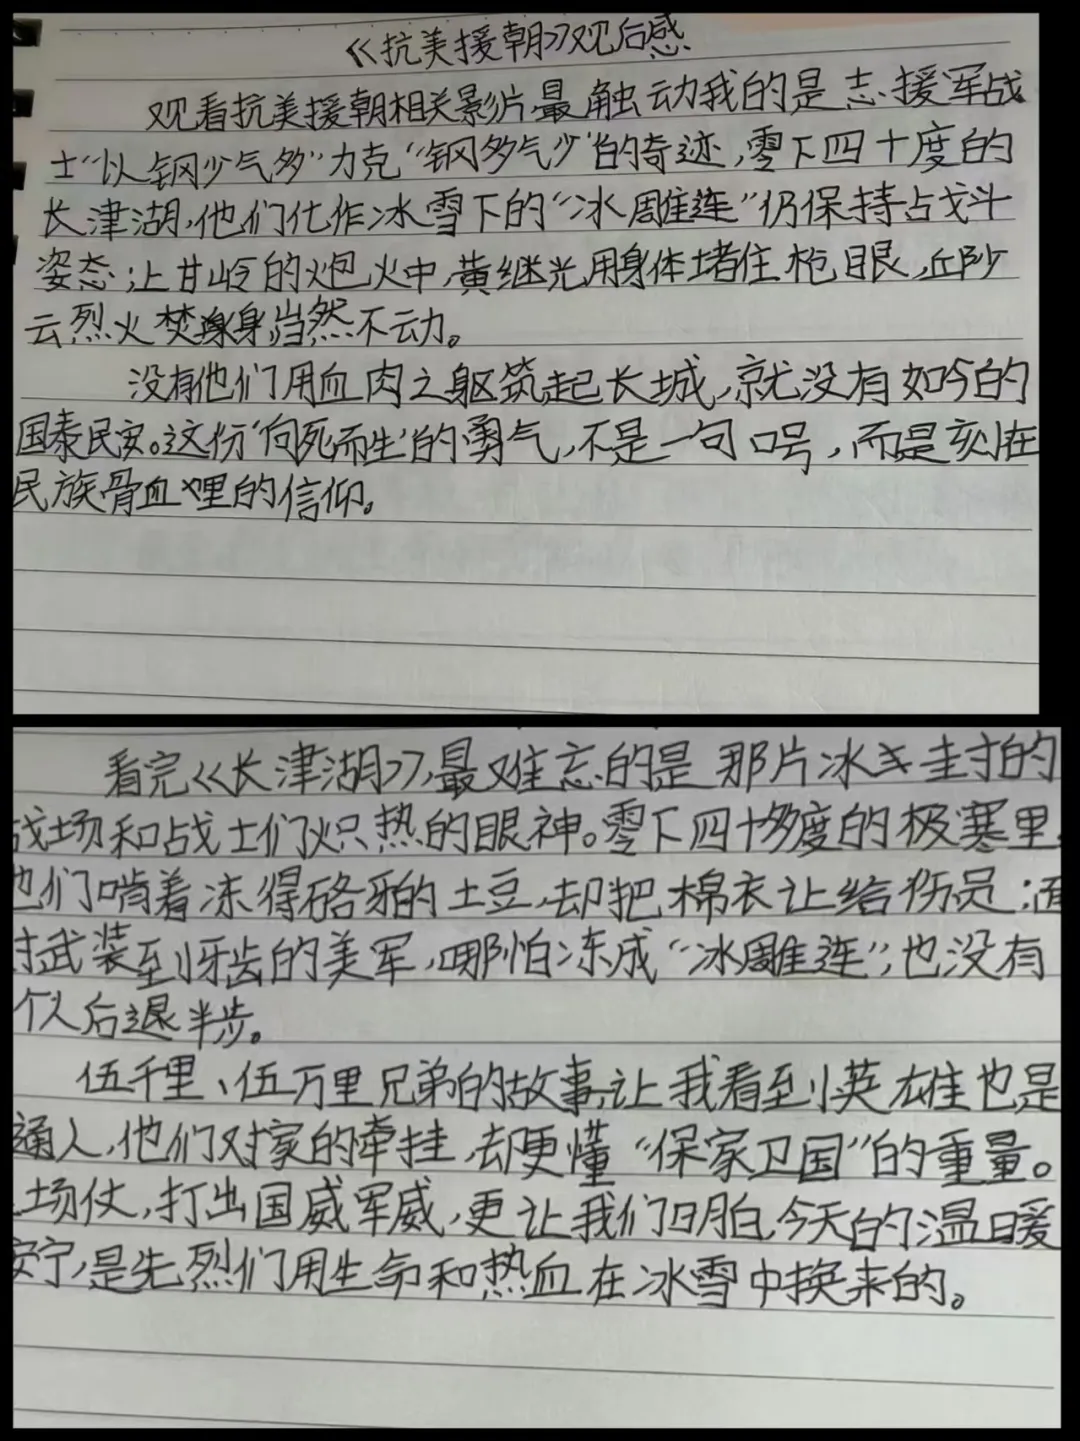 《抗美援朝》观后感
观看抗美援朝相关影片,最触动我的是志援军战
士“以钢少气多”力克“钢多气少”的奇迹,零下四十度的
长津湖,他们化作冰雪下的“冰雕连”仍保持占戈斗
姿态;上甘岭的炮火中,黄继光用身体堵住枪眼,丘陟
云烈火焚身,岿然不动。
没有他们用血肉之躯筑起长城,就没有如今的
国泰民安。这份‘向死而生’的勇气,不是一句口号,而是刻在
民族骨血里的信仰。
看完《长津湖》,最难忘的是那片冰封的
战场和战士们炽热的眼神。零下四十多度的极寒里,
他们啃着冻得硌牙的土豆,却把棉衣让给伤员;面
对武装到牙齿的美军,哪怕冻成“冰雕连”,也没有
个人后退半步。
伍千里、伍万里兄弟的故事,让我看到英雄也是
通人,他们对家的牵挂,却更懂“保家卫国”的重量。
场仗,打出国威军威,更让我们明白,今天的温暖
安宁,是先烈们用生命和热血在冰雪中换来的。